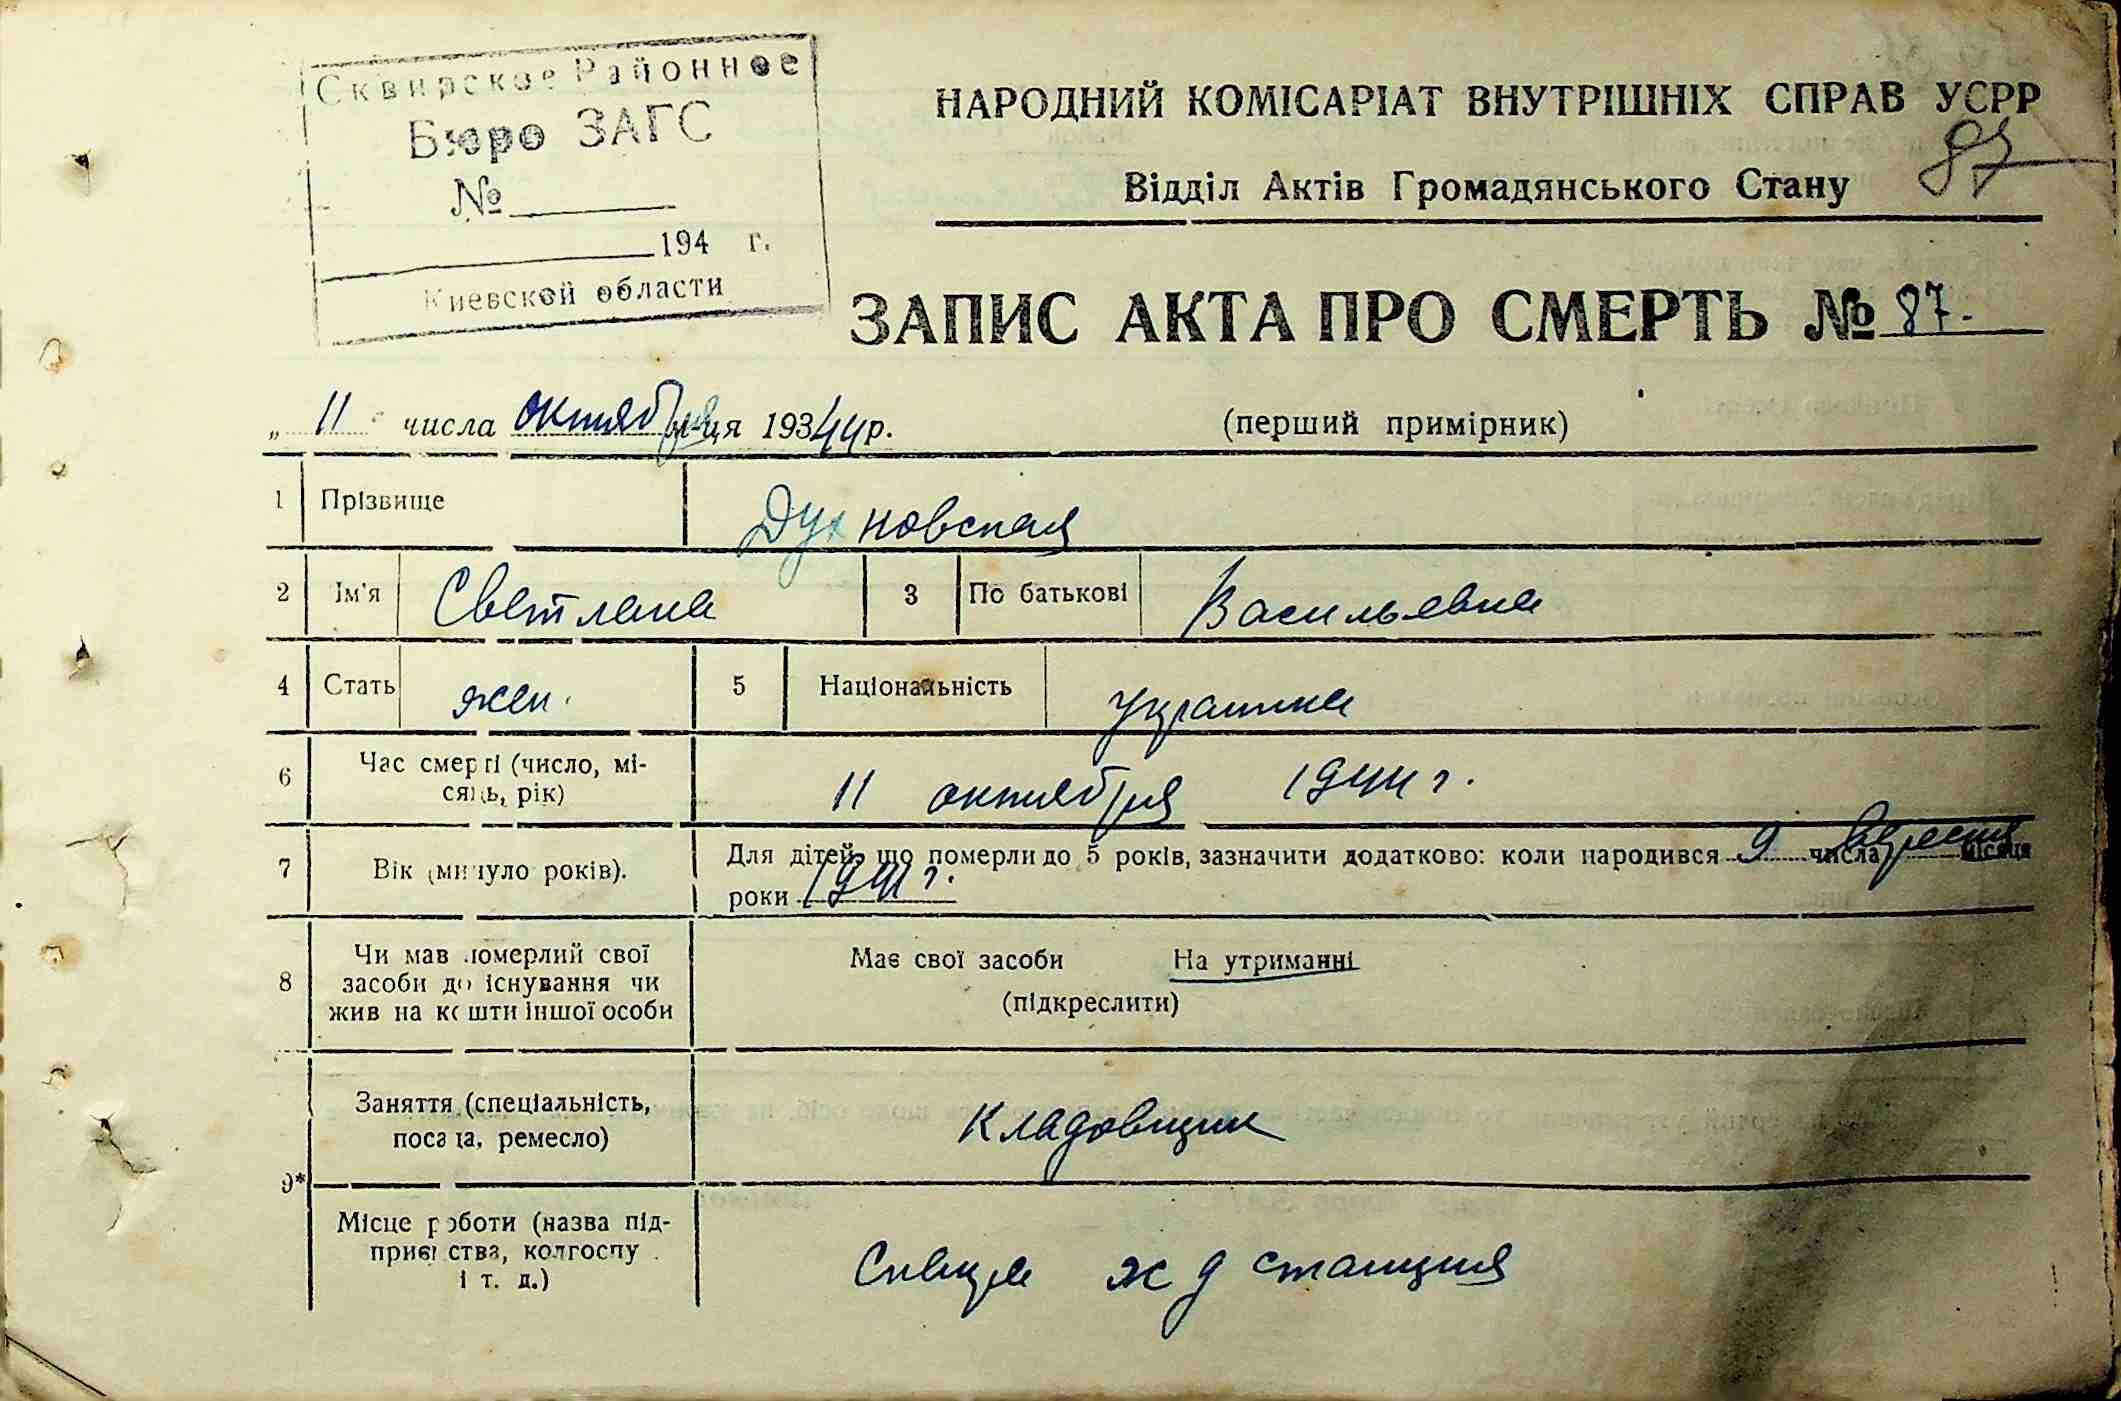 Сквирское Районное
Бюро ЗАГС
№
194 г.
Киевской области
НАРОДНИЙ КОМІСАРІАТ ВНУТРІШНІХ СПРАВ УСРР
87
Відділ Актів Громадянського Стану
ЗАПИС АКТА ПРО СМЕРТЬ № 87.
„ 11 " числа октября м-ця 19344 р.
(перший примірник)
1 Прізвище Духновская
2 Ім'я Светлана 3 По батькові Васильевна
4 Стать жен. 5 Національність украинка
6 Час смерті (число, мі-
сяць, рік) 11 октября 1944 г.
7 Вік (минуло років). Для дітей, що померли до 5 років, зазначити додатково: коли народився 9 числа місяця
роки 1941 г.
8 Чи мав померлий свої
засоби до існування чи
жив на кошти іншої особи
Має свої засоби На утриманні
(підкреслити)
9*
Заняття (спеціальність,
посада, ремесло) Кладовщик
Місце роботи (назва під-
приємства, колгоспу
і т. д.) Сквира ж д станция